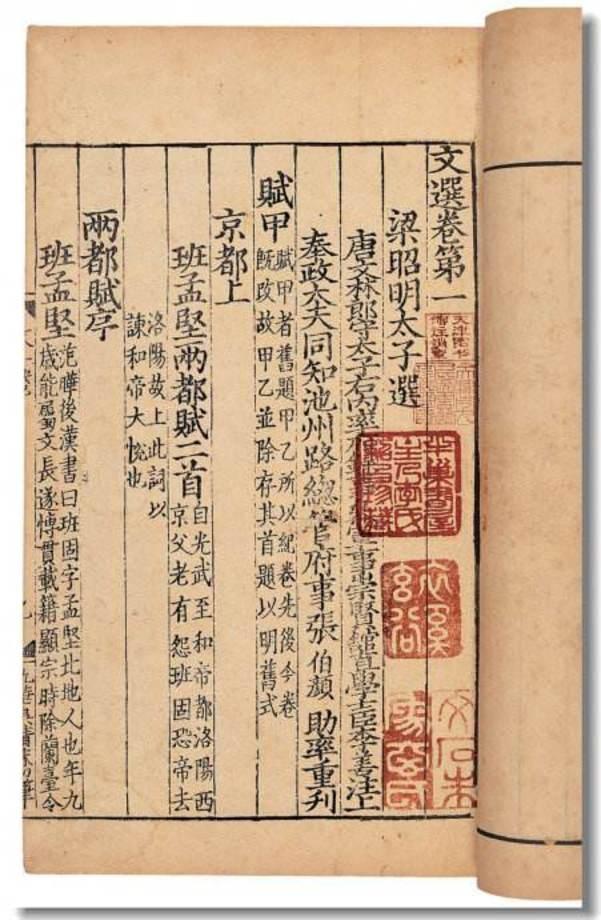 文選卷第一
梁昭明太子選
唐文林郎守太子右内率
事崇賢館直學士臣李善注上
奉政大夫同知池州路總管府事張伯顏助率重刊
賦甲
賦甲者舊題甲乙所以紀卷先後今卷
既改故甲乙並除存其首題以明舊式
京都上
班孟堅兩都賦二首
自光武至和帝都洛陽西
京父老有怨班固恐帝去
洛陽故上此詞以
諫和帝大悅也
兩都賦序
班孟堅
范曄後漢書曰班固字孟堅北地人也年九
歲能屬文長遂博貫載籍顯宗時除蘭臺令